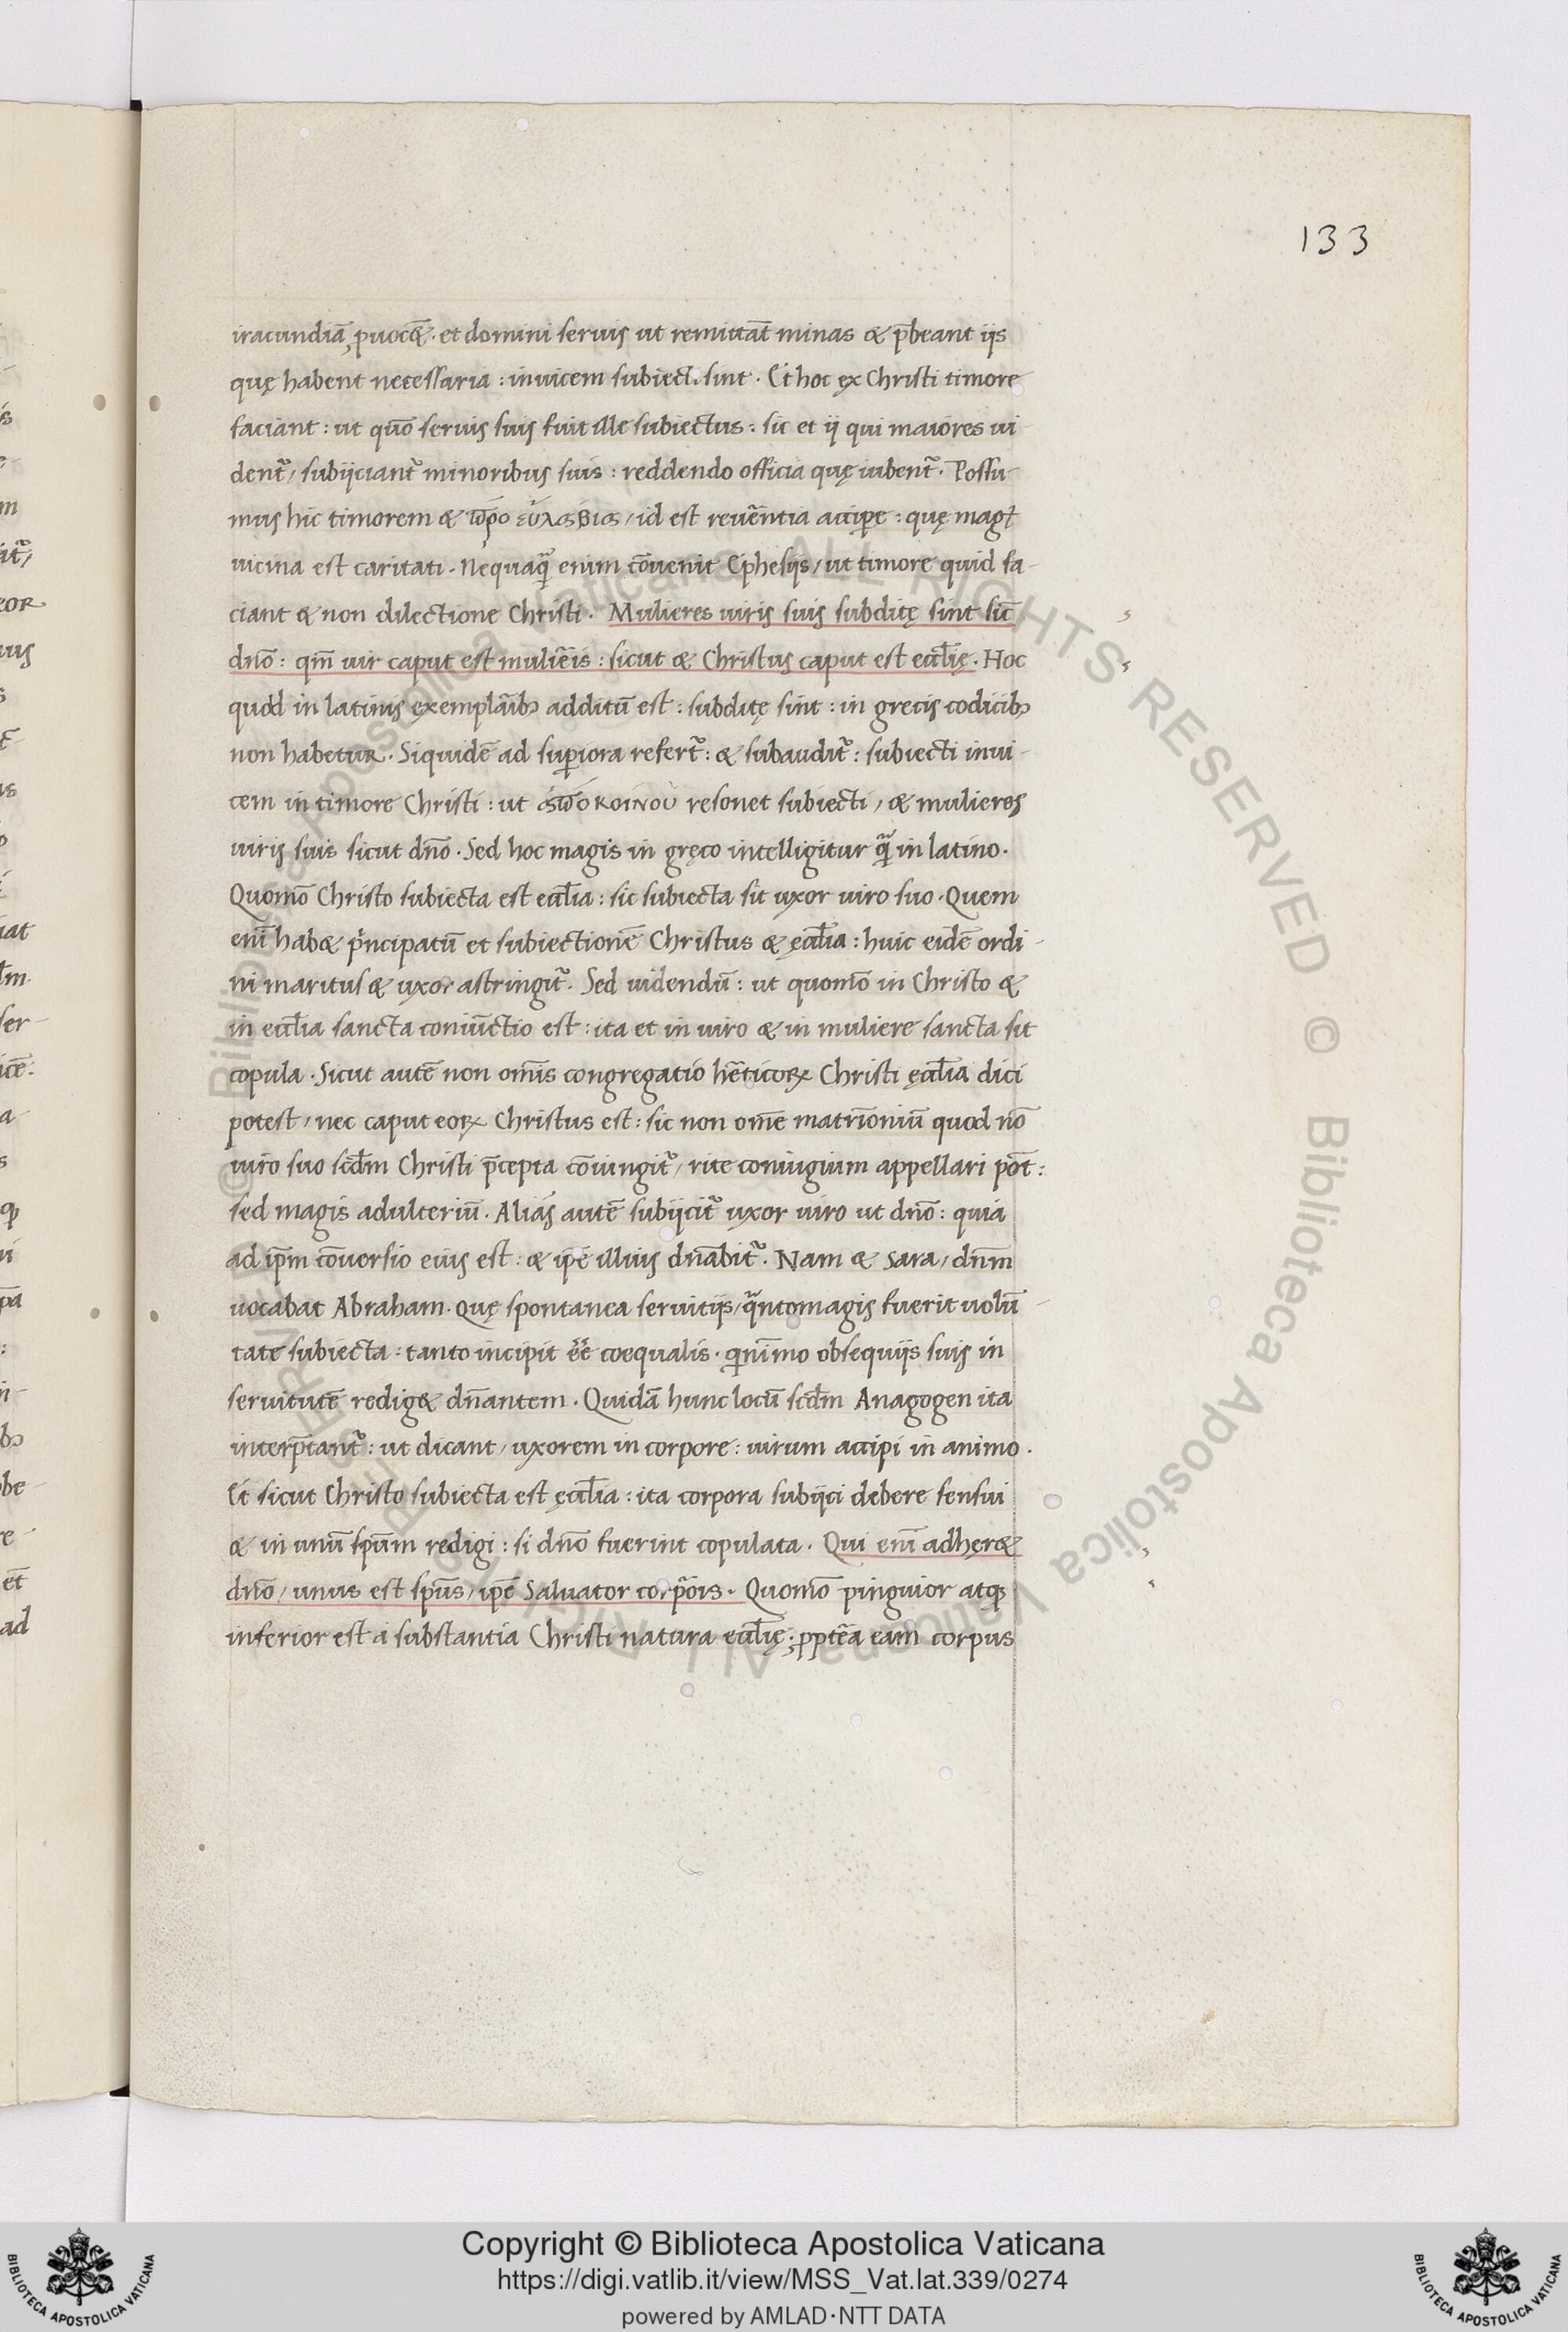 133
iracundiā ꝓuocēt. et domini seruis ut remittāt minas & p̄beant ijs
quę habent necessaria : inuicem subiecti sint. Et hoc ex Christi timore
faciant : ut quō seruis suis fuit ille subiectus : sic et ij qui maiores ui-
dent᷑, subijciant᷑ minoribus suis : reddendo officia quę iubent᷑. Possu-
mus hic timorem & πρὸ ἐυλαβια, id est reuēntia accipe : quę magꝭ
uicina est caritati. Nequaꝗ̄ enim cōuenit Ephesijs, ut timore quid fa-
ciant & non dilectione Christi. Mulieres uiris suis subditę sint sic̄
dnō : qm̄ uir caput est muliēis : sicut & Christus caput est eccl̄ię. Hoc
quod in latinis exemplāibꝫ additū est : subditę sint : in grecis codicibꝫ
non habetur. Siquidē ad supiora refert᷑ : & subaudit᷑ : subiecti inui-
cem in timore Christi : ut ἀπὸ κοινοῦ resonet subiecti, & mulieres
uiris suis sicut dnō. Sed hoc magis in gręco intelligitur ꝗ̄ in latino.
Quomō Christo subiecta est eccl̄ia : sic subiecta sit uxor uiro suo. Quem
enī habet pͥncipatū et subiectionē Christus & ęccl̄ia : huic eidē ordi-
ni maritus & uxor astringit᷑. Sed uidendū : ut quomō in Christo &
in eccl̄ia sancta coniūctio est : ita et in uiro & in muliere sancta sit
copula. Sicut autē non om̄is congregatio hēticoꝝ Christi ęccl̄ia dici
potest, nec caput eoꝝ Christus est : sic non om̄e matrīoniū quod nō
uiro suo scd̄m Christi p̄cepta cōiungit᷑, rite coniugium appellari pōt :
sed magis adulteriū. Aliás autē subijcit᷑ uxor uiro ut dnō : quia
ad ip̄m cōuersio eius est : & ip̄e illius dn̄abit᷑. Nam & Sara, dn̄m
uocabat Abraham. Quę spontanea seruitijs, ꝗ̄ntomagis fuerit uolū-
tate subiecta : tanto incipit ēē coequalis. qnīmo obsequijs suis in
seruitutē rediget dn̄antem. Quidā hunc locū scd̄m Anagogen ita
interp̄tant᷑ : ut dicant, uxorem in corpore : uirum accipi in animo.
Et sicut Christo subiecta est ęccl̄ia : ita corpora subijci debere sensui
& in unū sp̄um redigi : si dnō fuerint copulata. Qui enī adhęret
dnō, unus est sp̄us, ip̄e Saluator corp̄ois. Quomō pinguior atqꝫ
inferior est á substantia Christi natura eccl̄ię : ꝓptēa eam corpus
Copyright © Biblioteca Apostolica Vaticana
https://digi.vatlib.it/view/MSS_Vat.lat.339/0274
powered by AMLAD·NTT DATA